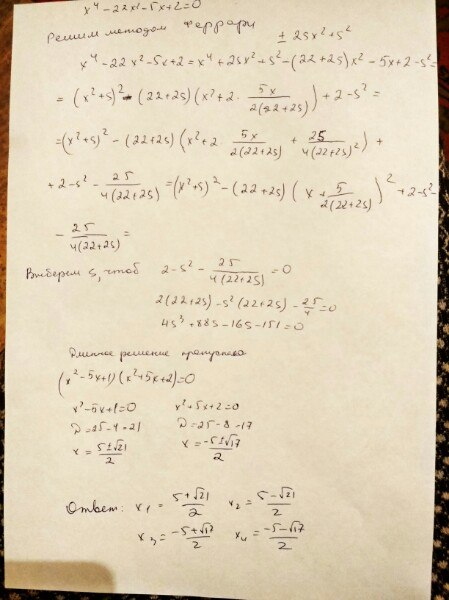 x⁴ - 22x² - 5x + 2 = 0
Решим методом Феррари
± 2sx² + s²
x⁴ - 22x² - 5x + 2 = x⁴ + 2sx² + s² - (22 + 2s)x² - 5x + 2 - s² =
= (x² + s)² - (22 + 2s)(x² + 2 · 5x/2(22 + 2s)) + 2 - s² =
= (x² + s)² - (22 + 2s)(x² + 2 · 5x/2(22 + 2s) + 25/4(22 + 2s)²) +
+ 2 - s² - 25/4(22 + 2s) = (x² + s)² - (22 + 2s)(x + 5/2(22 + 2s))² + 2 - s² -
- 25/4(22 + 2s) =
Выберем s, чтоб 2 - s² - 25/4(22 + 2s) = 0
2(22 + 2s) - s²(22 + 2s) - 25/4 = 0
4s³ + 88s - 16s - 151 = 0
Длинное решение пропускаю
(x² - 5x + 1)(x² + 5x + 2) = 0
x² - 5x + 1 = 0 x² + 5x + 2 = 0
D = 25 - 4 = 21 D = 25 - 8 = 17
x = 5 ± √21/2 x = -5 ± √17/2
Ответ: x₁ = 5 + √21/2 x₂ = 5 - √21/2
x₃ = -5 + √17/2 x₄ = -5 - √17/2